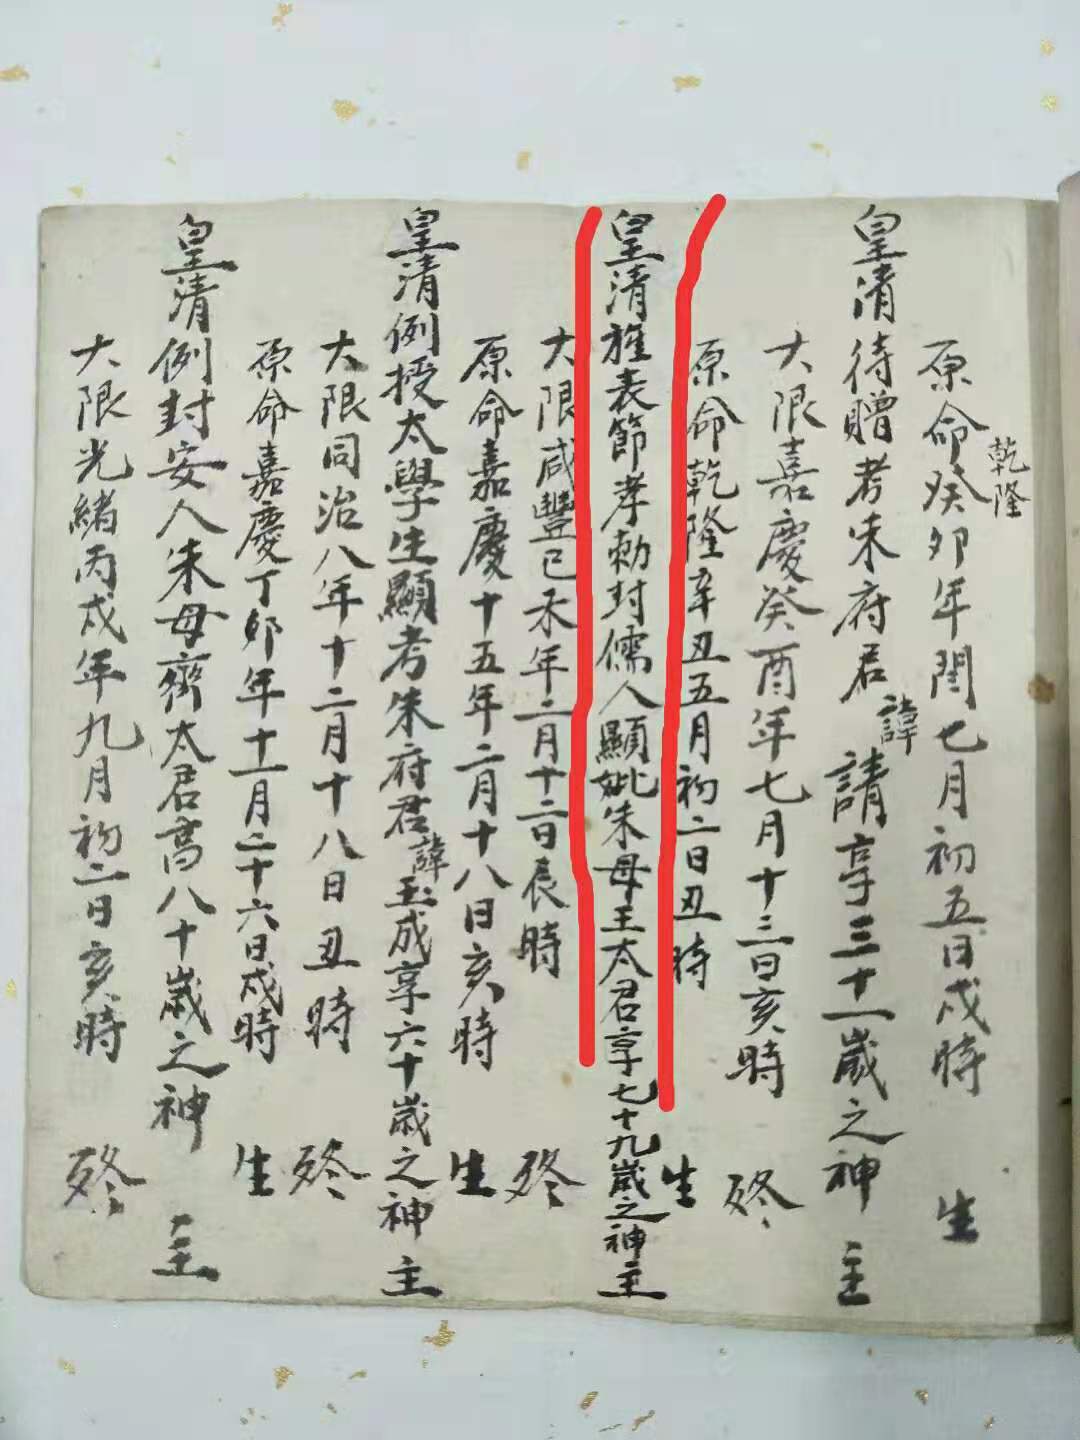 乾隆
原命癸卯年閏七月初五日戌時 生
皇清待贈考朱府君諱請享三十一歲之神主
大限嘉慶癸酉年七月十三日亥時 歿
原命乾隆辛丑五月初二日丑時 生
皇清旌表節孝勅封儒人顯妣朱母王太君享七十九歲之神主
大限咸豐已未年二月十二日辰時 歿
原命嘉慶十五年二月十八日亥時 生
皇清例授太學生顯考朱府君諱玉成享六十歲之神主
大限同治八年十二月十八日丑時 歿
原命嘉慶丁卯年十一月二十六日戌時 生
皇清例封安人朱母齊太君高八十歲之神主
大限光緒丙戌年九月初二日亥時 歿